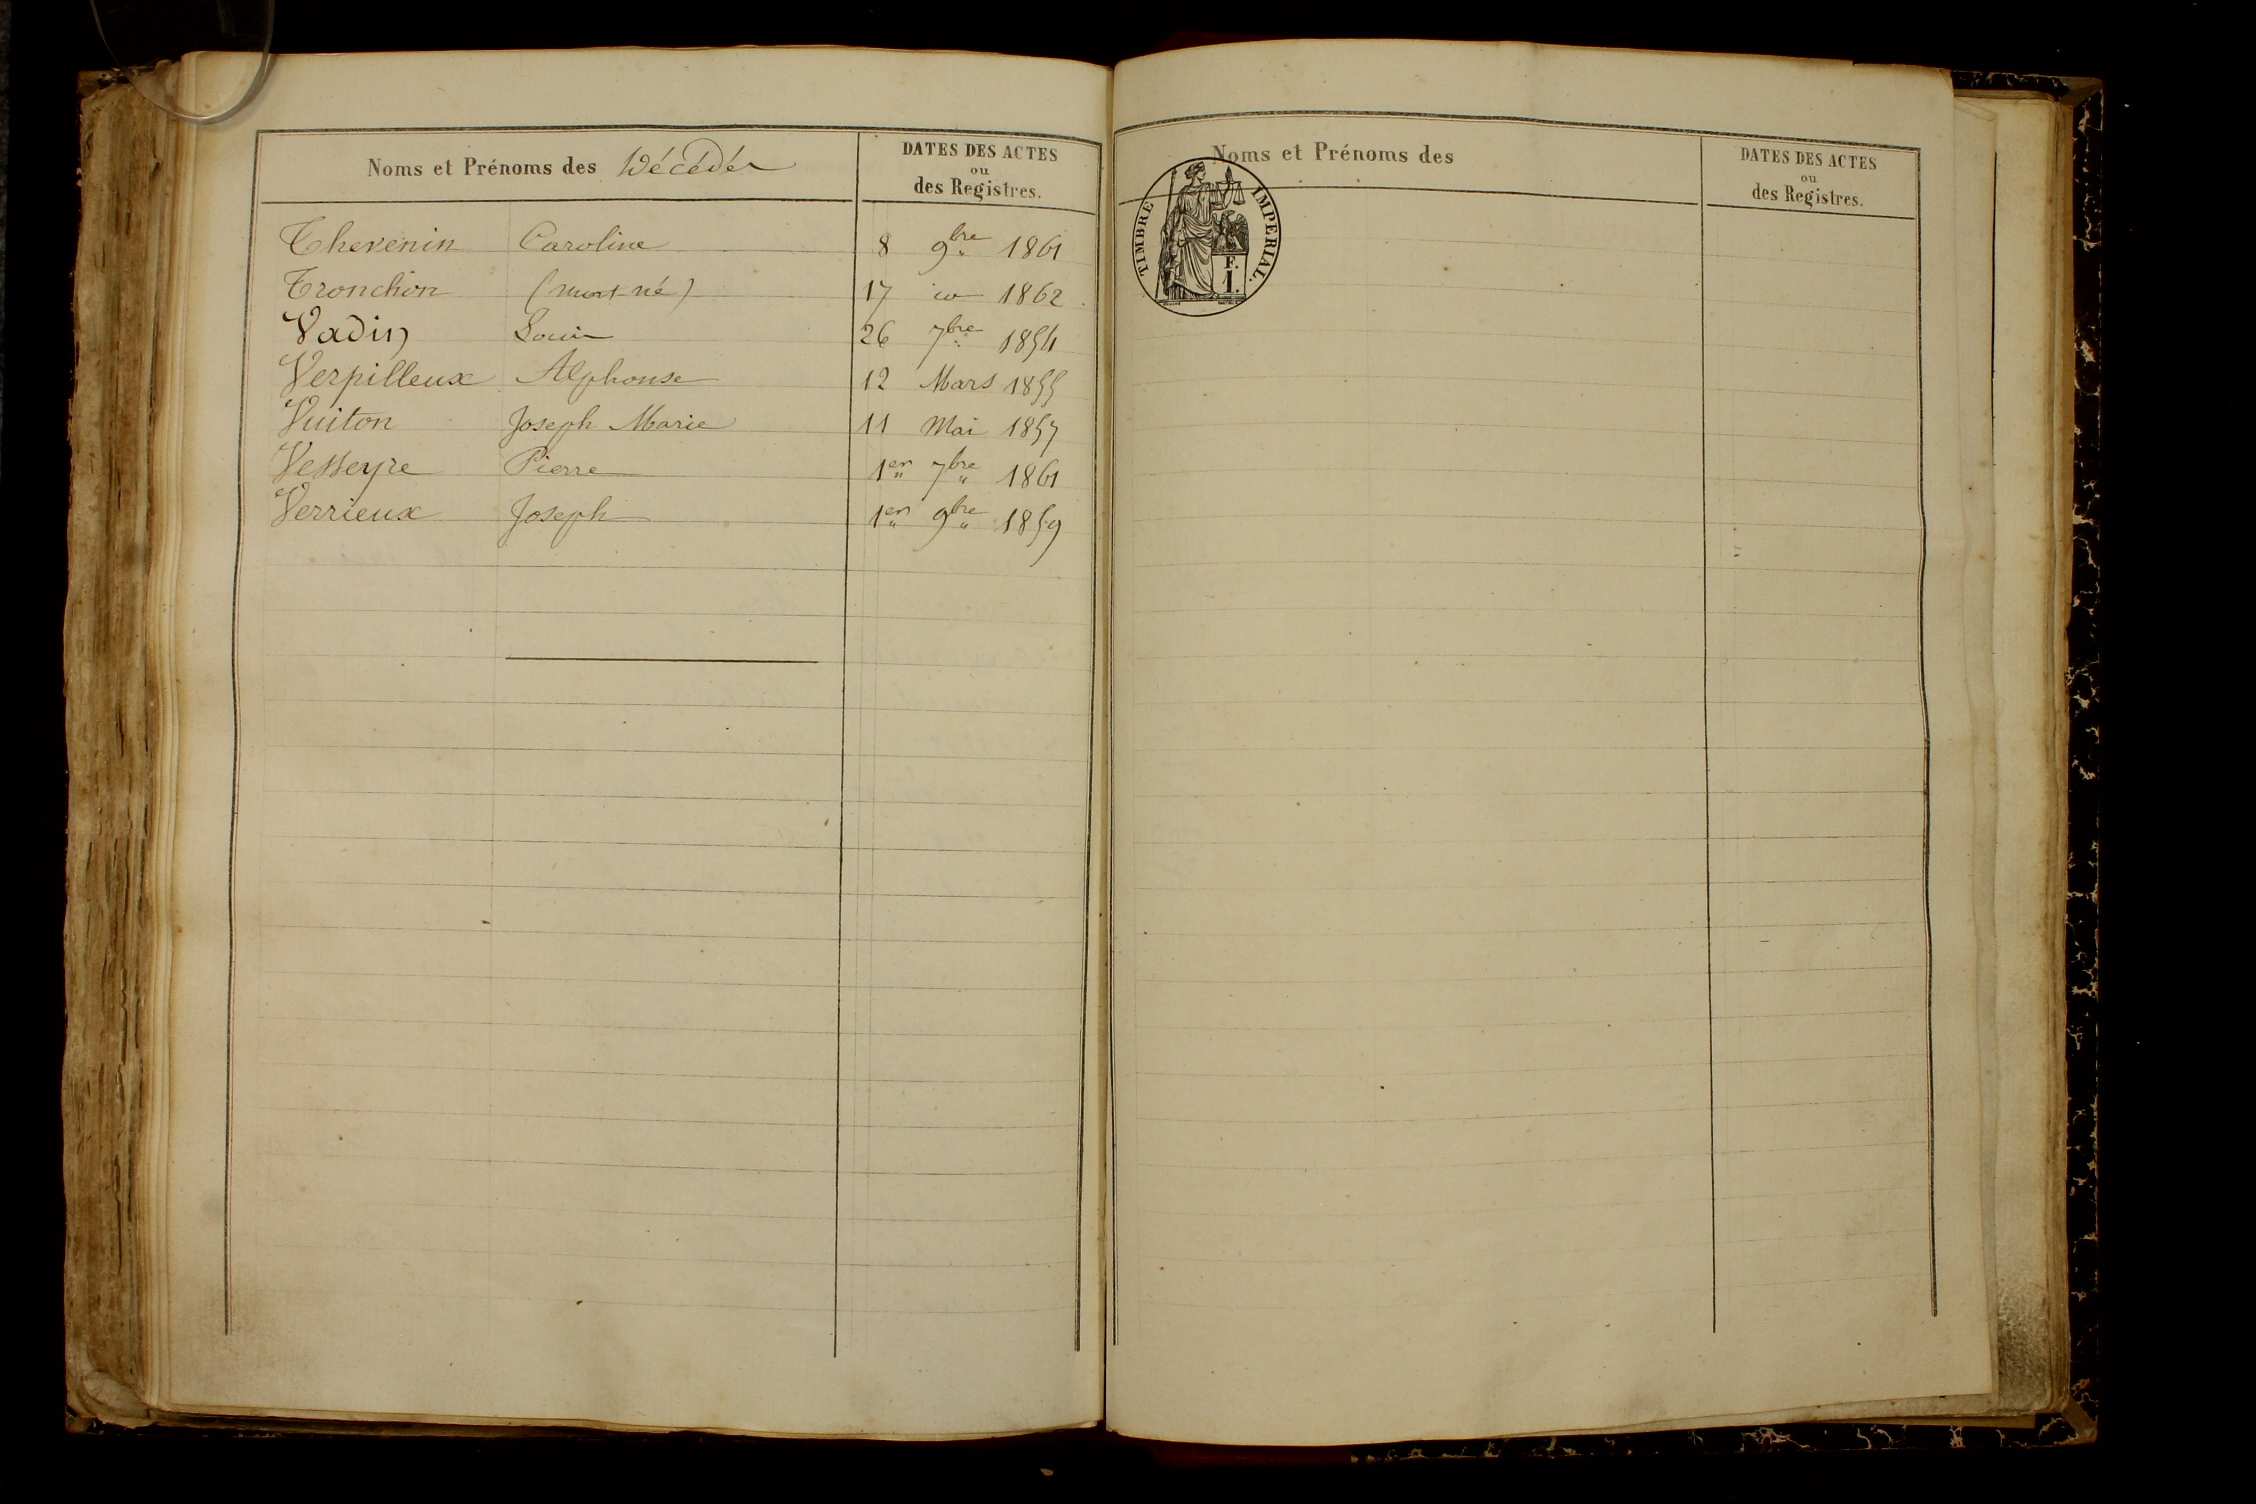 Noms et Prénoms des Décédés
DATES DES ACTES
ou
des Registres.
Thevenin Caroline 8 9bre 1861
Tronchon (mort-né) 17 id 1862
Vadin Louis 26 7bre 1854
Verpilleux Alphonse 12 Mars 1855
Vuiton Joseph Marie 11 Mai 1857
Vesseyre Pierre 1er 7bre 1861
Verrieux Joseph 1er 9bre 1859
Noms et Prénoms des
DATES DES ACTES
ou
des Registres.
TIMBRE IMPERIAL.
F.
1.